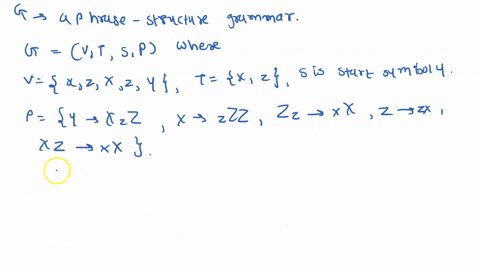 G → a phrase-structure grammar.
G = (V, T, S, P) where
V = { x, z, X, Z, y }, T = { x, z }, S is start symbol y.
P = { y → XzZ , X → zZZ , Zz → xX , Z → zx ,
XZ → xX } .